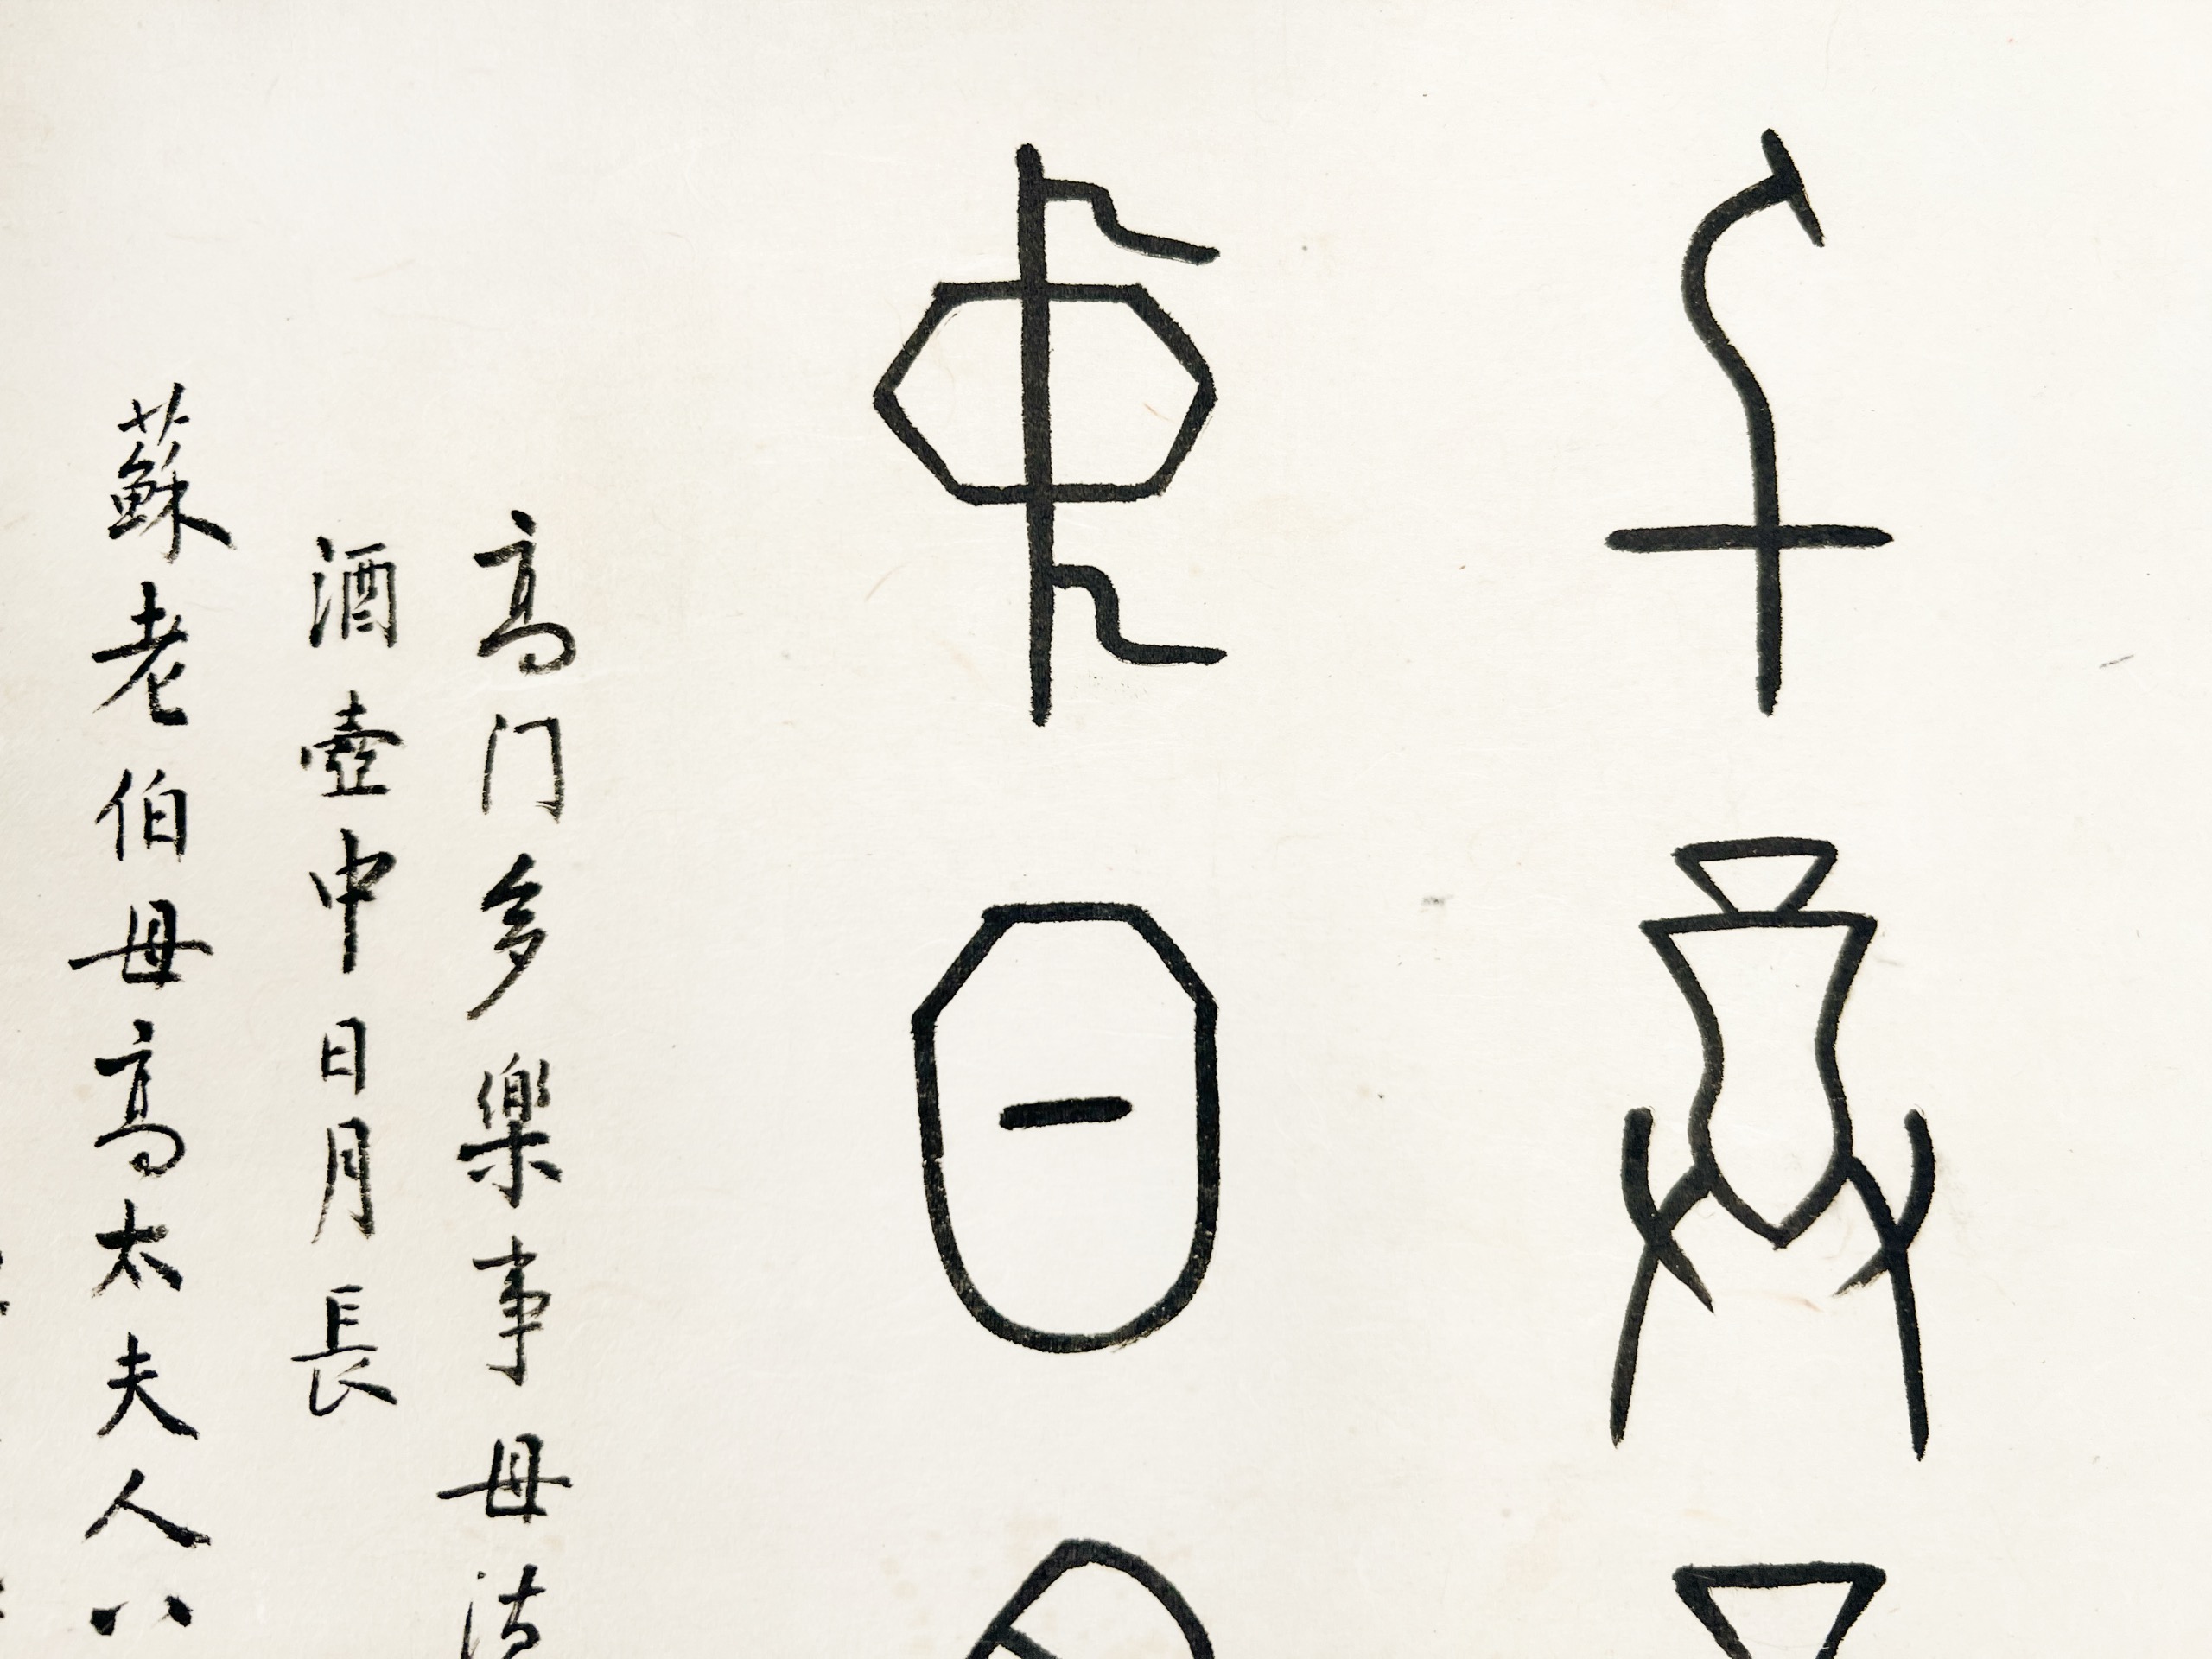 千尊
中日
高门多樂事母
酒壺中日月長
蘇老伯母高太夫人八